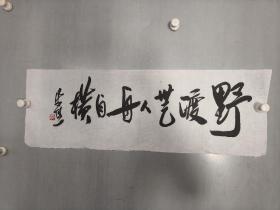 野渡無人舟自横